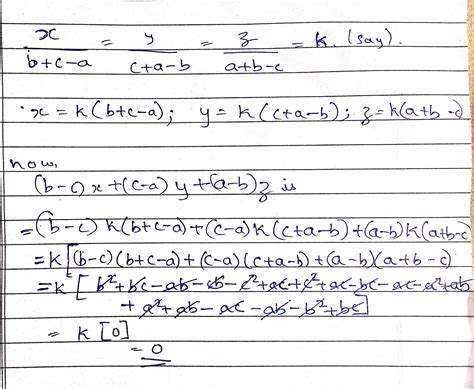 x/(b+c-a) = y/(c+a-b) = z/(a+b-c) = k. (say).
x = k(b+c-a); y = k(c+a-b); z = k(a+b-c)
now,
(b-c)x+(c-a)y+(a-b)z is
=(b-c)k(b+c-a)+(c-a)k(c+a-b)+(a-b)k(a+b-c)
=k[(b-c)(b+c-a)+(c-a)(c+a-b)+(a-b)(a+b-c)
=k[b²+bc-ab-cb-c²+ac+c²+ac-bc-ac-a²+ab
+a²+ab-ac-ab-b²+bc]
= k[0]
= 0